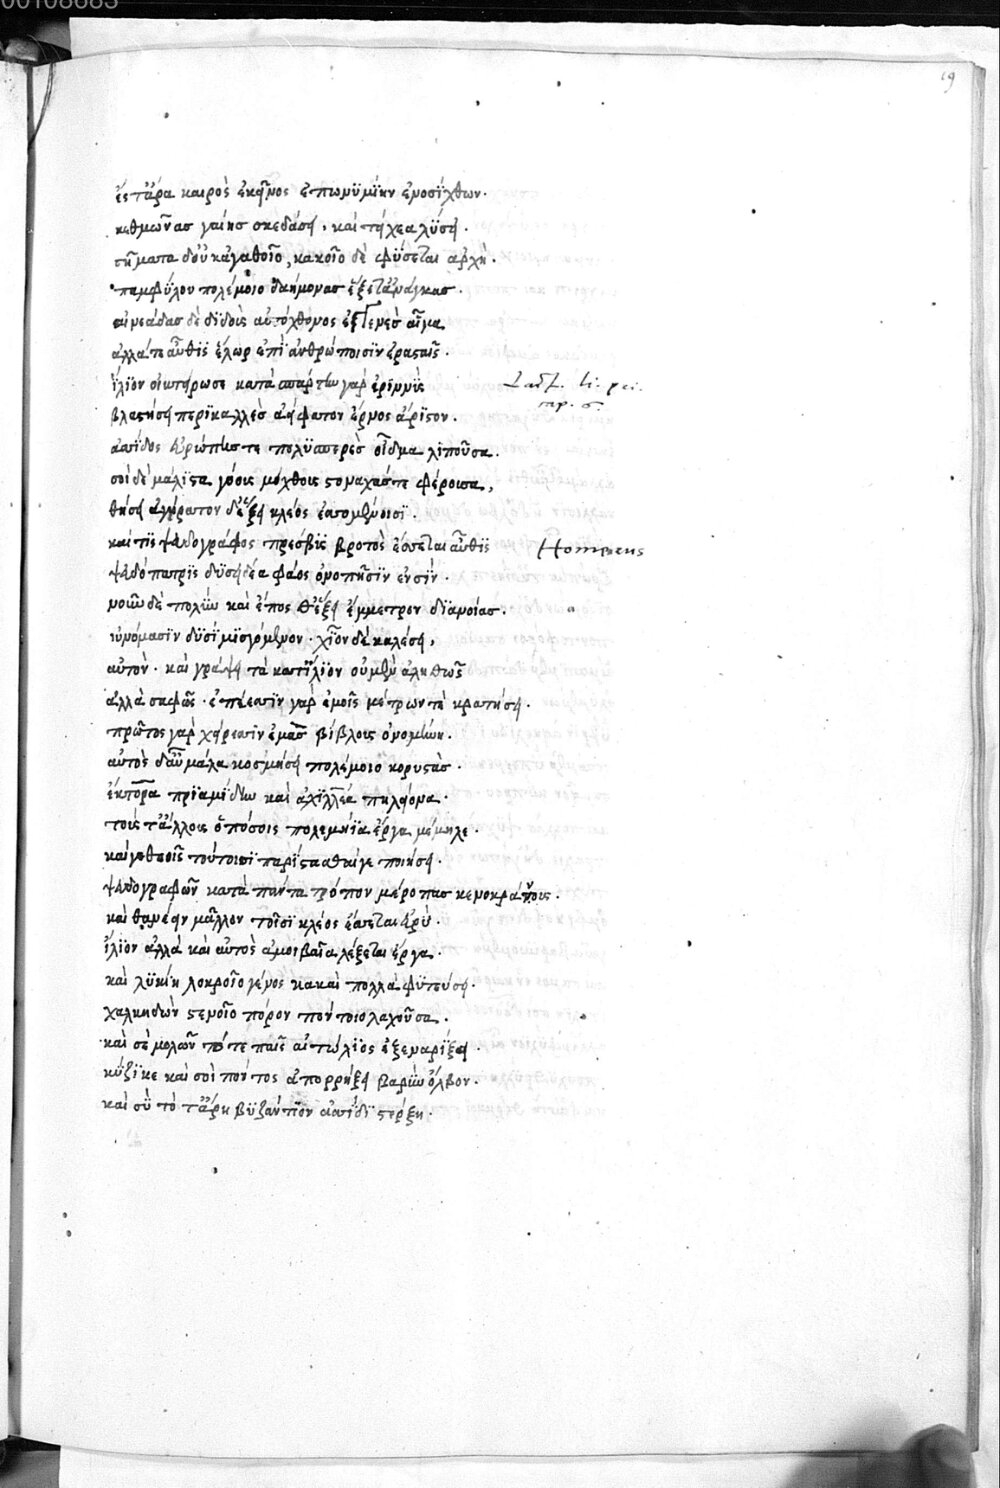 00108683
19
ἔς τ' ἄρα καιρὸς ἐκεῖνος ἐπωνυμίην ἐνοσίχθων.
κεθμῶνας γαίης σκεδάσει, καὶ τείχεα λύσει.
πήματα δ' οὐκ ἀγαθοῖο, κακοῖο δὲ φύσεται ἀρχή.
παμφύλου πολέμοιο δαήμονας ἕξετ' ἄνακτας.
αἰνεάδας δὲ διδοὺς αὐτόχθονος ἐγγενὲς αἷμα
ἀλλά τε αὖθις ἕλωρ ἐπὶ ἀνθρώποισιν ἐρασταῖς.
ἴλιον οἰκτείρω σε κατὰ σπάρτην γὰρ ἐριννὺς
Lact. li. pri.
cap. 6.
βλαστήσει περικαλλὲς ἀείφατον ἔρνος ἄριστον.
ἀσίδος εὐρώπης τε πολυσπερὲς οἶδμα λιποῦσα.
σοὶ δὲ μάλιστα γόους μόχθους στοναχάς τε φέρουσα,
θήσει ἀγήρατον δ' ἕξει κλέος ἐσσομένοισι.
καί τις ψευδογράφος πρέσβυς βροτὸς ἔσσεται αὖθις
Homerus
ψευδόπατρις δύσει δέ α φάος ὀνοπῆσιν ἐνσίν.
νοῦν δὲ πολὺν καὶ ἔπος θ' ἕξει ἔμμετρον διανοίας.
οὐνόμασιν δυσὶ μισγόμενον. χῖον δὲ καλέσει,
αὐτόν. καὶ γράψει τὰ κατ' ἴλιον οὐ μὲν ἀληθῶς
ἀλλὰ σαφῶς. ἐπέεσσιν γὰρ ἐμοῖς μέτρων τε κρατήσει.
πρῶτος γὰρ χείρεσσιν ἐμὰς βίβλους ὀνομήνῃ.
αὐτὸς δ' αὖ μάλα κοσμήσει πολέμοιο κορυστάς.
ἕκτορα πριαμίδην καὶ ἀχιλλέα πηλείονα.
τοὺς τ' ἄλλους ὁπόσοις πολεμήϊα ἔργα μέμηλε.
καί γε θεοὺς τούτοισι παρίστασθαί γε ποιήσει.
ψευδογραφῶν κατὰ πάντα τρόπον μέροπας κενοκράνους.
καὶ θανέειν μᾶλλον τοῖσι κλέος ἔσσεται εὐρύ.
ἴλιον ἀλλὰ καὶ αὐτὸς ἀμοιβαῖα λέξεται ἔργα.
καὶ λυκίη λοκροῖο γένος κακὰ πολλὰ φυτεύσει.
χαλκηδὼν στενοῖο πόρον πόντοιο λαχοῦσα.
καὶ σὲ μολὼν πότε παῖς αἰτώλιος ἐξεναρίξει
κύζικε καὶ σοὶ πόντος ἀπορρήξει βαρὺν ὄλβον.
καὶ σὺ τότ' ἄρη βυζάντιον ἀσίδι στέρξῃ.